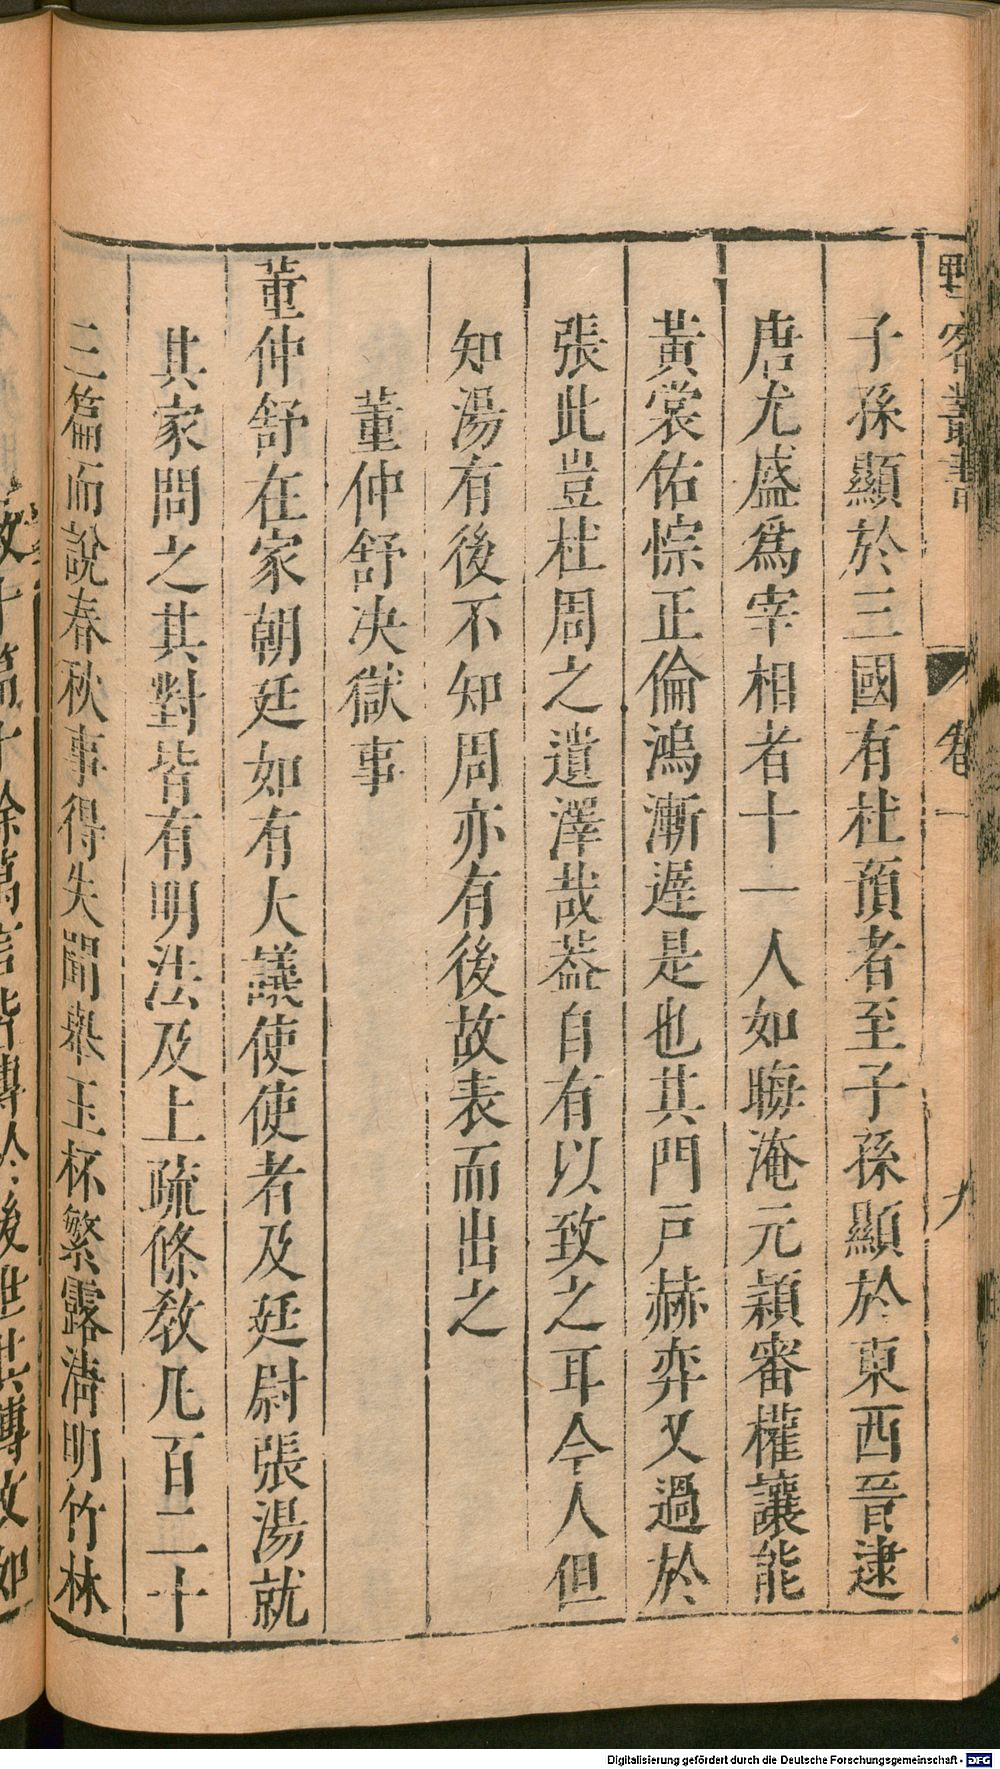 野客叢書
卷一
九
子孫顯於三國有杜預者至子孫顯於東西晉逮
唐尤盛爲宰相者十一人如晦淹元穎審權讓能
黃裳佑悰正倫鴻漸暹是也其門戸赫弈又過於
張此豈杜周之遺澤哉葢自有以致之耳今人但
知湯有後不知周亦有後故表而出之
董仲舒决獄事
董仲舒在家朝廷如有大議使使者及廷尉張湯就
其家問之其對皆有明法及上疏條教凡百二十
三篇而說春秋事得失聞舉玉杯繁露清明竹林
數十篇十餘萬言皆傳於後世其傳故如
Digitalisierung gefördert durch die Deutsche Forschungsgemeinschaft - DFG